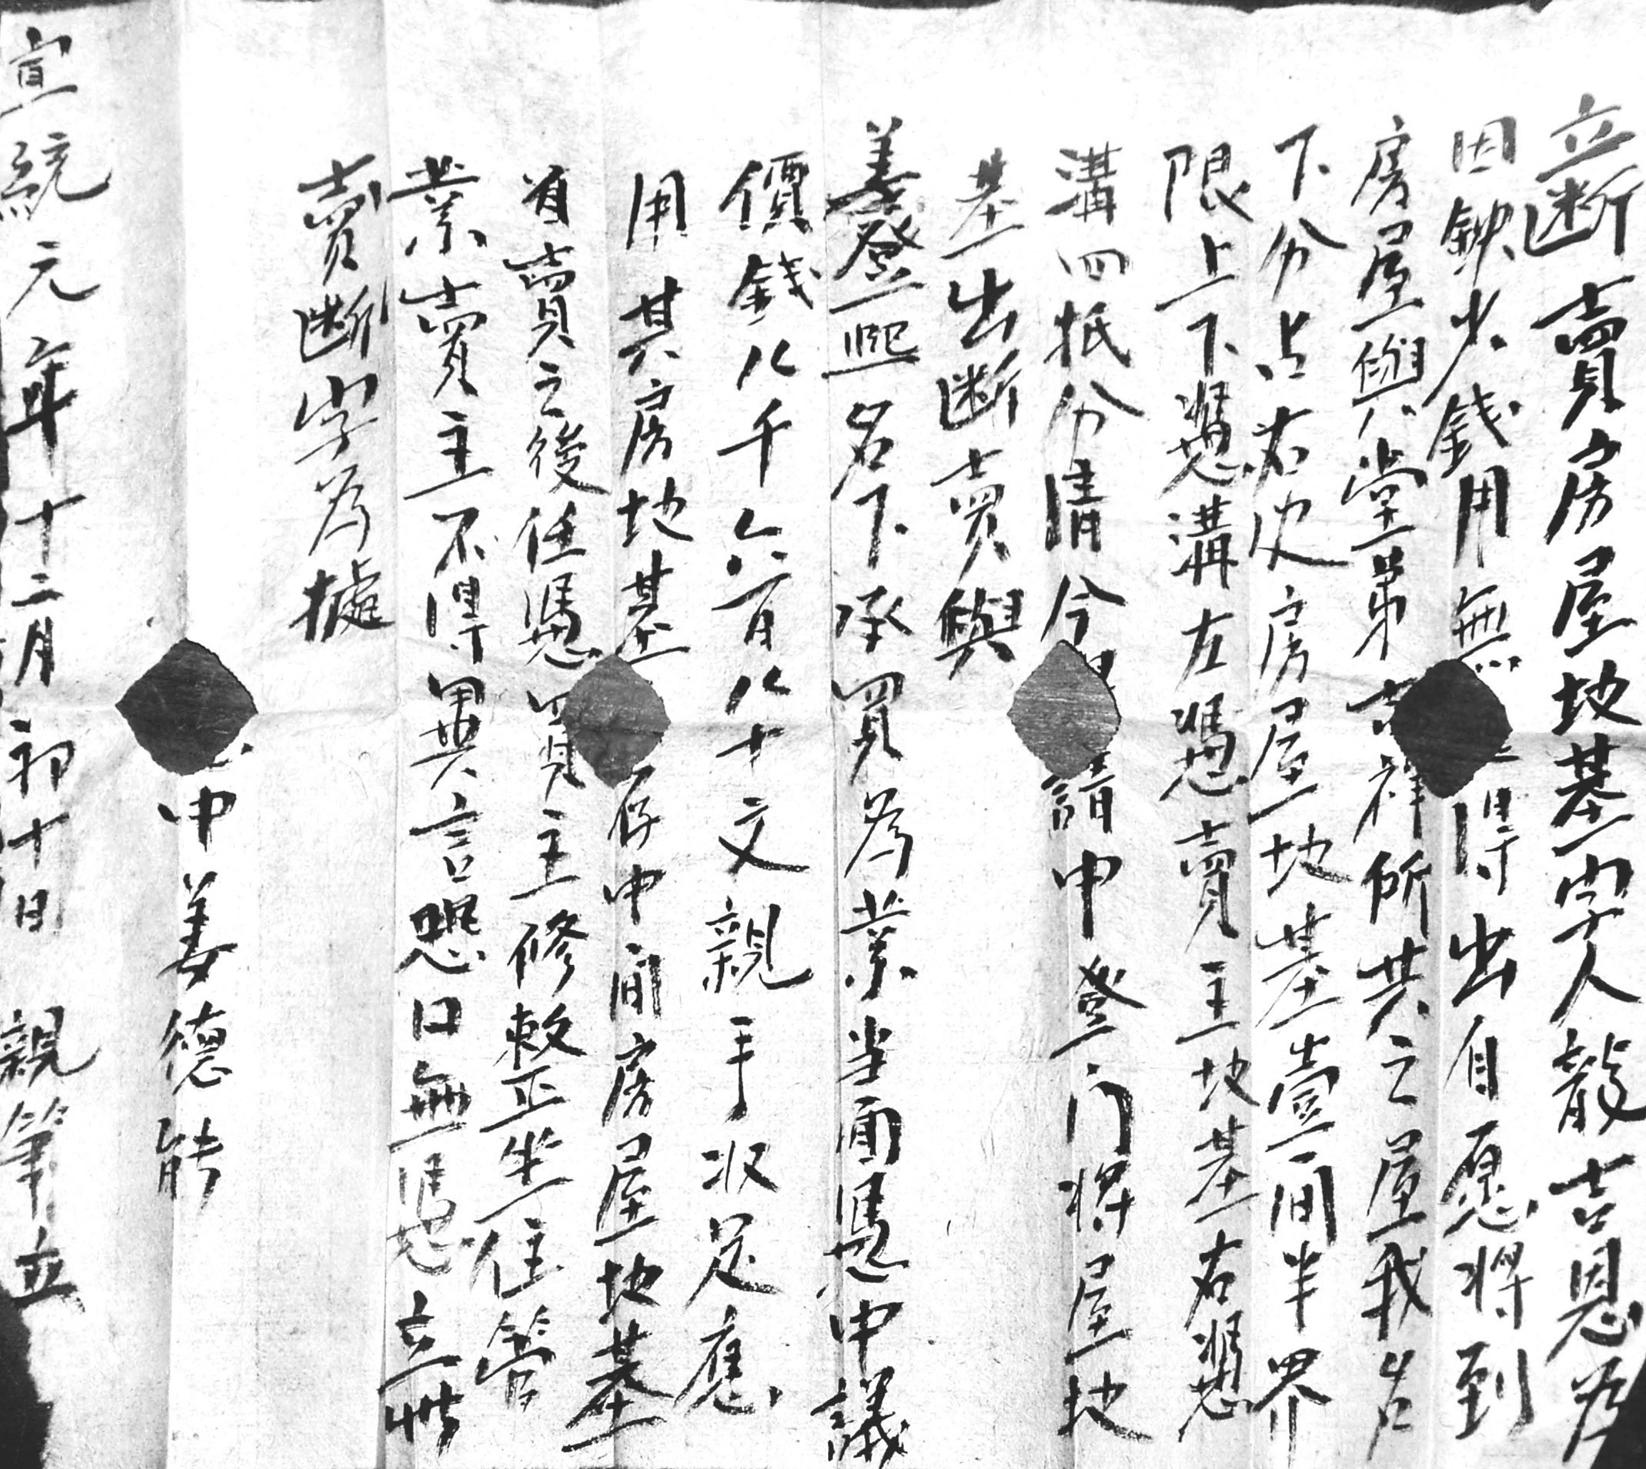 立断賣房屋地基字人龍吉恩为
因缺少錢用無得出自愿将到
房屋與堂弟吉祥所共之屋我名
下分占右边房屋地基壹間半界
限上下憑溝左憑賣主地基右憑
溝四抵分清今請中登门将屋地
基出断賣與
姜登熙名下承買為業当面憑中議
價錢八千六百八十文親手收足應
用其房地基存中间房屋地基
自賣之後任憑買主修整坐住管
業賣主不得異言恐口無憑立此
賣断字為據
中姜德能
宣統元年十二月初十日 親筆立